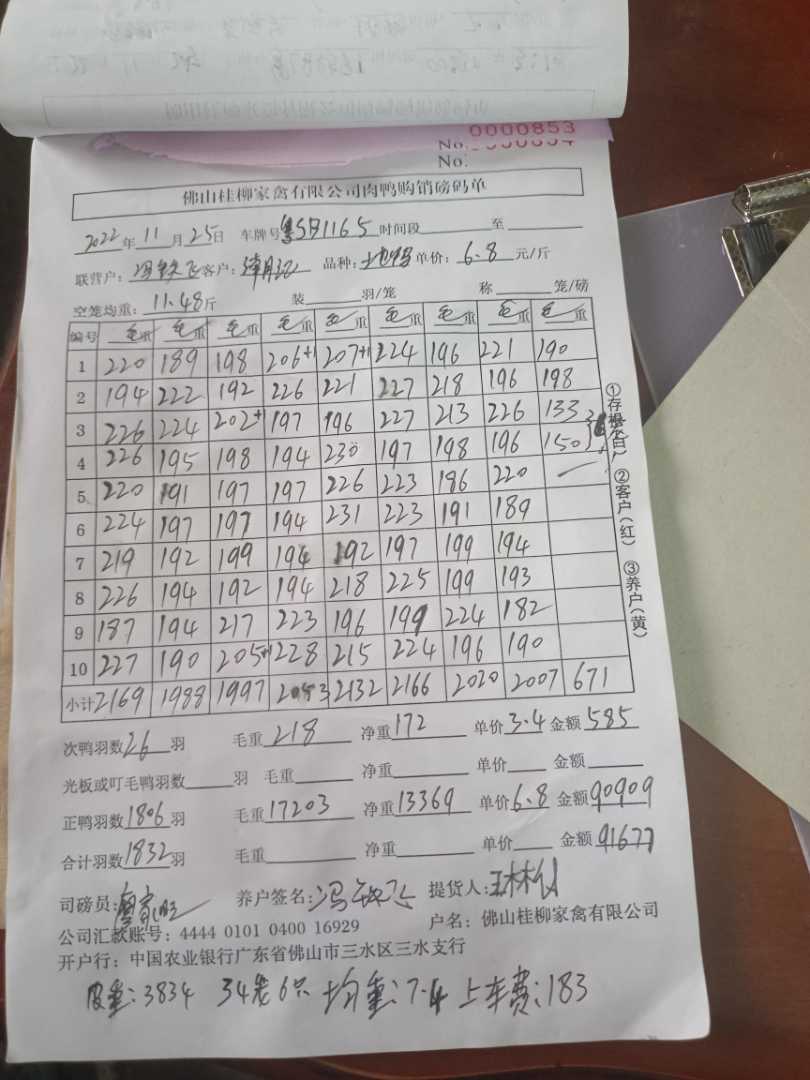 0000853
No.
No.
佛山桂柳家禽有限公司肉鸭购销磅码单
2022年11月25日 车牌号 时间段 至
联营户: 客户: 品种: 单价: 6.8 元/斤
空笼均重: 11.48斤 装 羽/笼 称 笼/磅
编号 毛重 毛重 毛重 毛重 毛重 毛重 毛重 毛重 毛重
1 220 189 198 206+1 207+1 224 196 221 190
2 194 222 192 226 221 227 218 196 198
3 226 224 202+ 197 196 227 213 226 133
4 226 195 198 194 230 197 198 196 150
5 220 191 197 197 226 223 186 220 —
6 224 197 197 194 231 223 191 189
7 219 192 199 194 192 197 199 194
8 226 194 192 194 218 225 199 193
9 187 194 217 223 196 199 224 182
10 227 190 205+1 228 215 224 196 190
小计 2169 1988 1997 2053 2132 2166 2020 2007 671
①存根(白) ②客户(红) ③养户(黄)
次鸭羽数26羽 毛重218 净重172 单价3.4 金额585
光板或叮毛鸭羽数 羽 毛重 净重 单价 金额
正鸭羽数1806羽 毛重17203 净重13369 单价6.8 金额90909
合计羽数1832羽 毛重 净重 单价 金额91677
司磅员: 养户签名: 提货人:
公司汇款账号: 4444 0101 0400 16929 户名: 佛山桂柳家禽有限公司
开户行: 中国农业银行广东省佛山市三水区三水支行
皮重:3834 34笼6只 均重:7.4 上车费:183